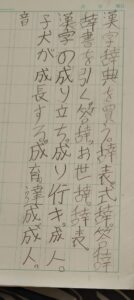 漢字辞典を買る辞表式辞答辞
辞書を引く答辞お世辞辞表
漢字の成り立ち成り行き成人。
子犬が成長する成育達成成人。
音